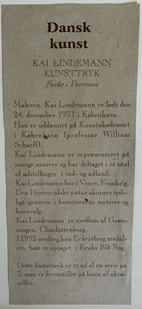 Dansk
kunst
KAI LINDEMANN
KUNSTTRYK
Forke i Provence
Maleren Kai Lindemann er født den
24. december 1931 i København.
Han er uddannet på Kunstakademiet
i København (professor William
Scharff).
Kai Lindemann er repræsenteret på
mange museer og har deltaget i et utal
af udstillinger i ind- og udland.
Kai Lindemann bor i Vence, Frankrig.
Den Provencalske natur afspejles tydeligt
ligt gennem i kunstnerens motiver og
farvevalg.
Kai Lindemann er medlem af Grønningen,
ningen, Charlottenborg.
I 1992 modtog han Eckersberg medaljen,
len, han er optaget i Kraks Blå Bog.
Dette kunsttryk er et ud af en serie på
7, som er fremstillet på basis af akvareller.